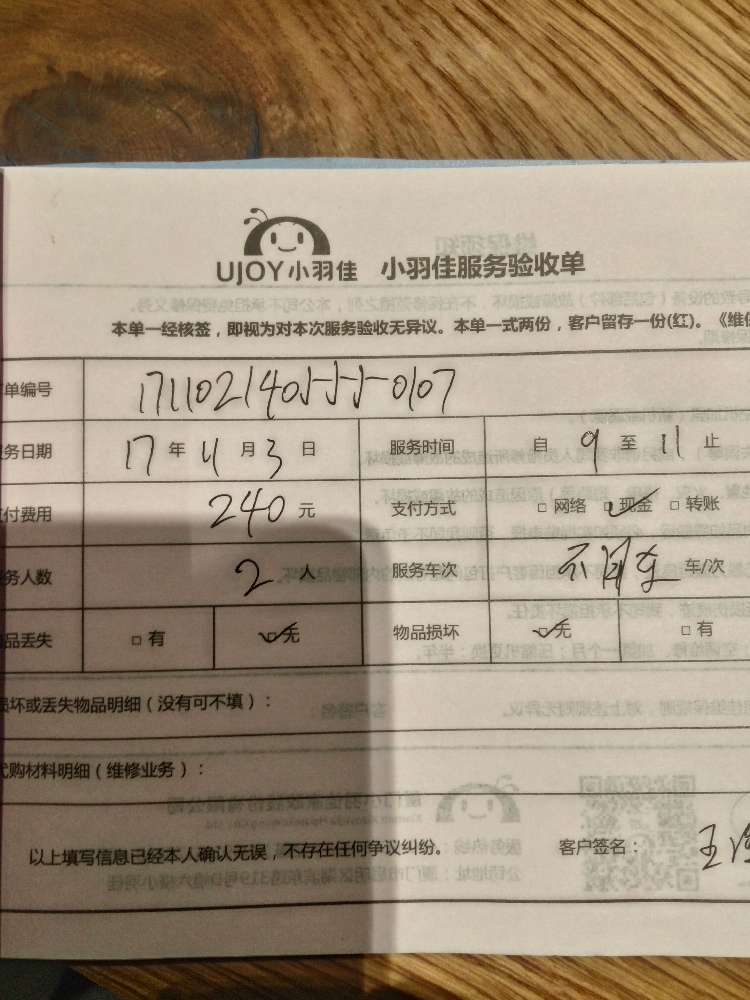 UJOY小羽佳 小羽佳服务验收单
本单一经核签，即视为对本次服务验收无异议。本单一式两份，客户留存一份(红)。《维
单编号 171102140555-0107
务日期 17 年 11 月 3 日 服务时间 自 9 至 11 止
付费用 240 元 支付方式 □ 网络 □ 现金 □ 转账
务人数 2 人 服务车次 不用车 车/次
品丢失 □ 有 □ 无 物品损坏 □ 无 □ 有
损坏或丢失物品明细（没有可不填）：
代购材料明细（维修业务）：
以上填写信息已经本人确认无误，不存在任何争议纠纷。 客户签名： 王